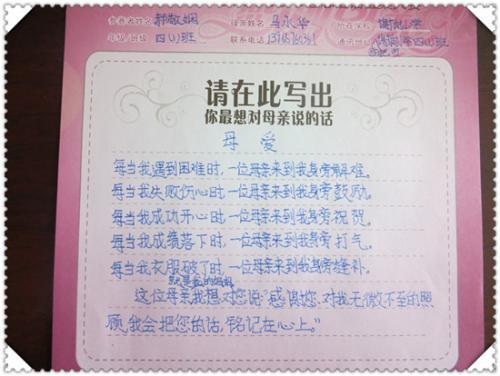 参赛者姓名 郝敬娴 推荐姓名 马永华 所在学校
年级/班级 四(1)班 联系电话 通讯地址 四(1)班
请在此写出
你最想对母亲说的话
母爱
每当我遇到困难时,一位母亲来到我身旁解难。
每当我失败伤心时,一位母亲来到我身旁鼓励。
每当我成功开心时,一位母亲来到我身旁祝贺。
每当我成绩落下时,一位母亲来到我身旁打气。
每当我衣服破了时,一位母亲来到我身旁缝补。
就是我的妈妈
这位母亲,我想对您说:“感谢您,对我无微不至的照
顾,我会把您的话,铭记在心上。”